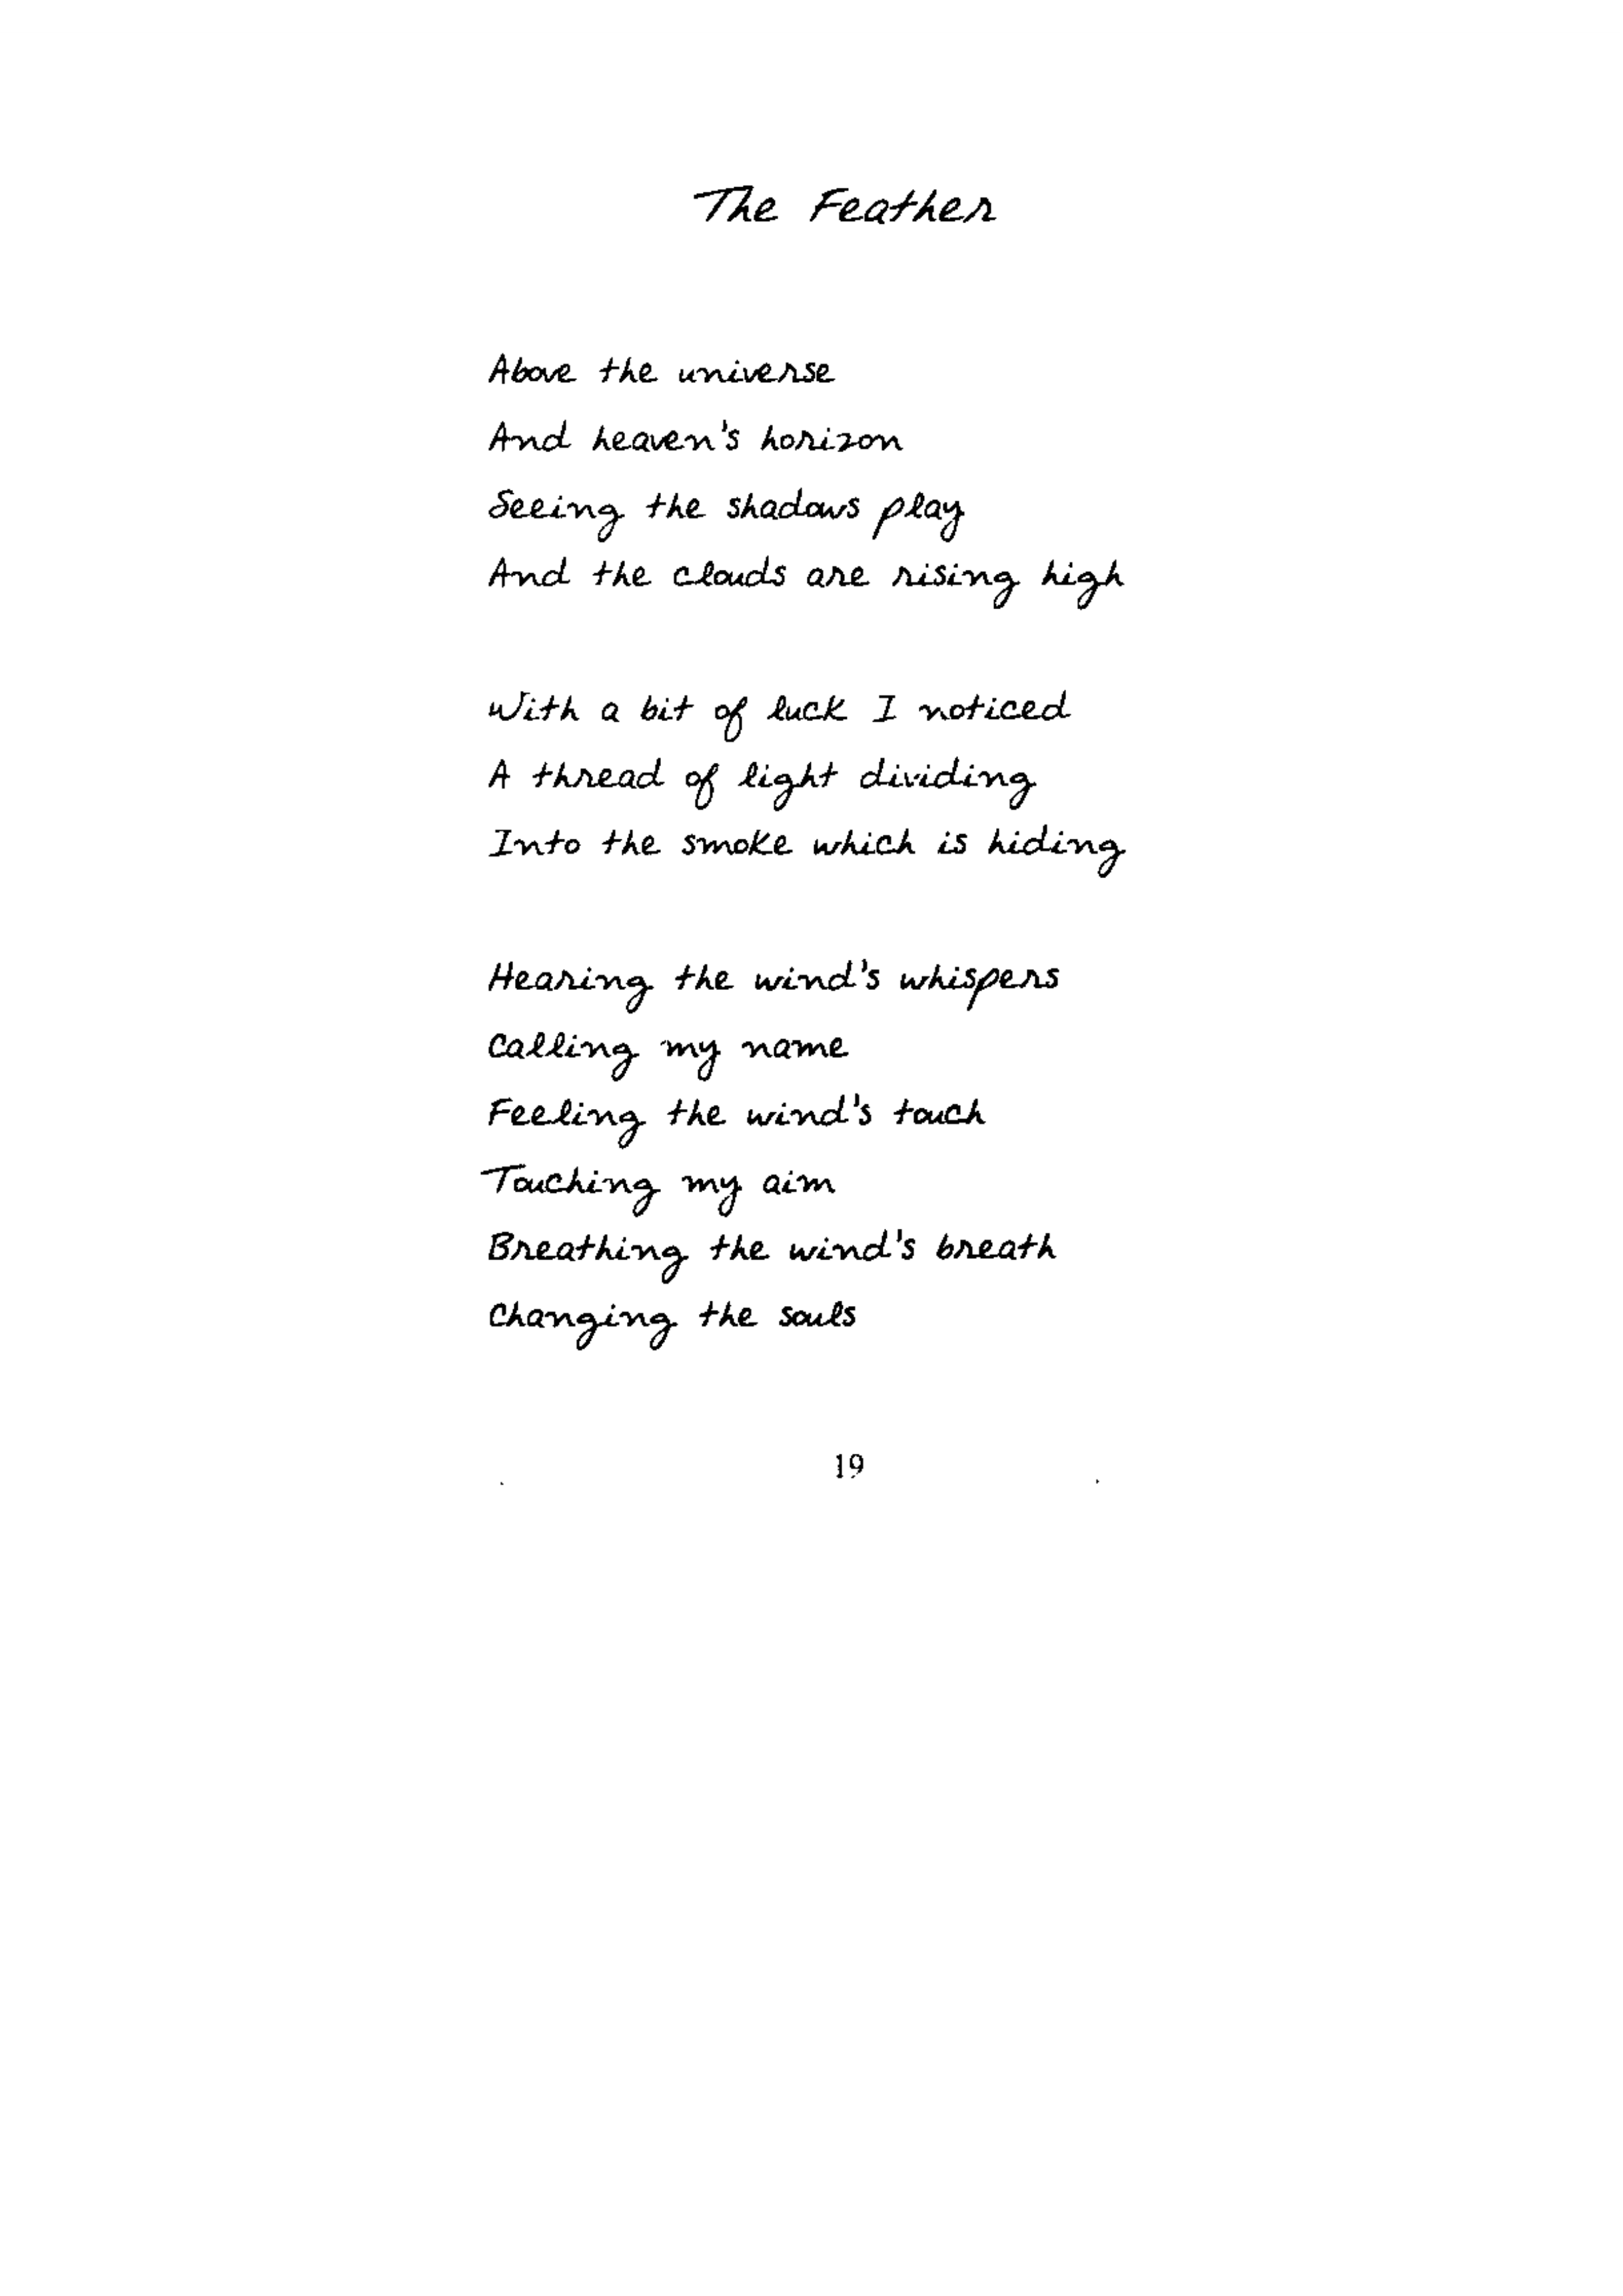 The Feather
Above the universe
And heaven's horizon
Seeing the shadows play
And the clouds are rising high
With a bit of luck I noticed
A thread of light dividing
Into the smoke which is hiding
Hearing the wind's whispers
Calling my name
Feeling the wind's touch
Touching my aim
Breathing the wind's breath
Changing the souls
19